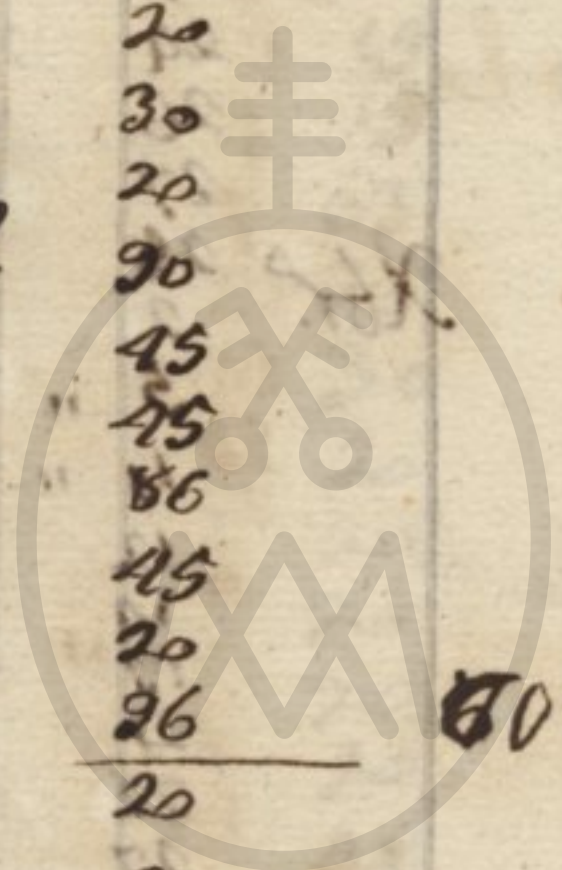 20
30
20
90
45
45
86
45
20
96
60
20